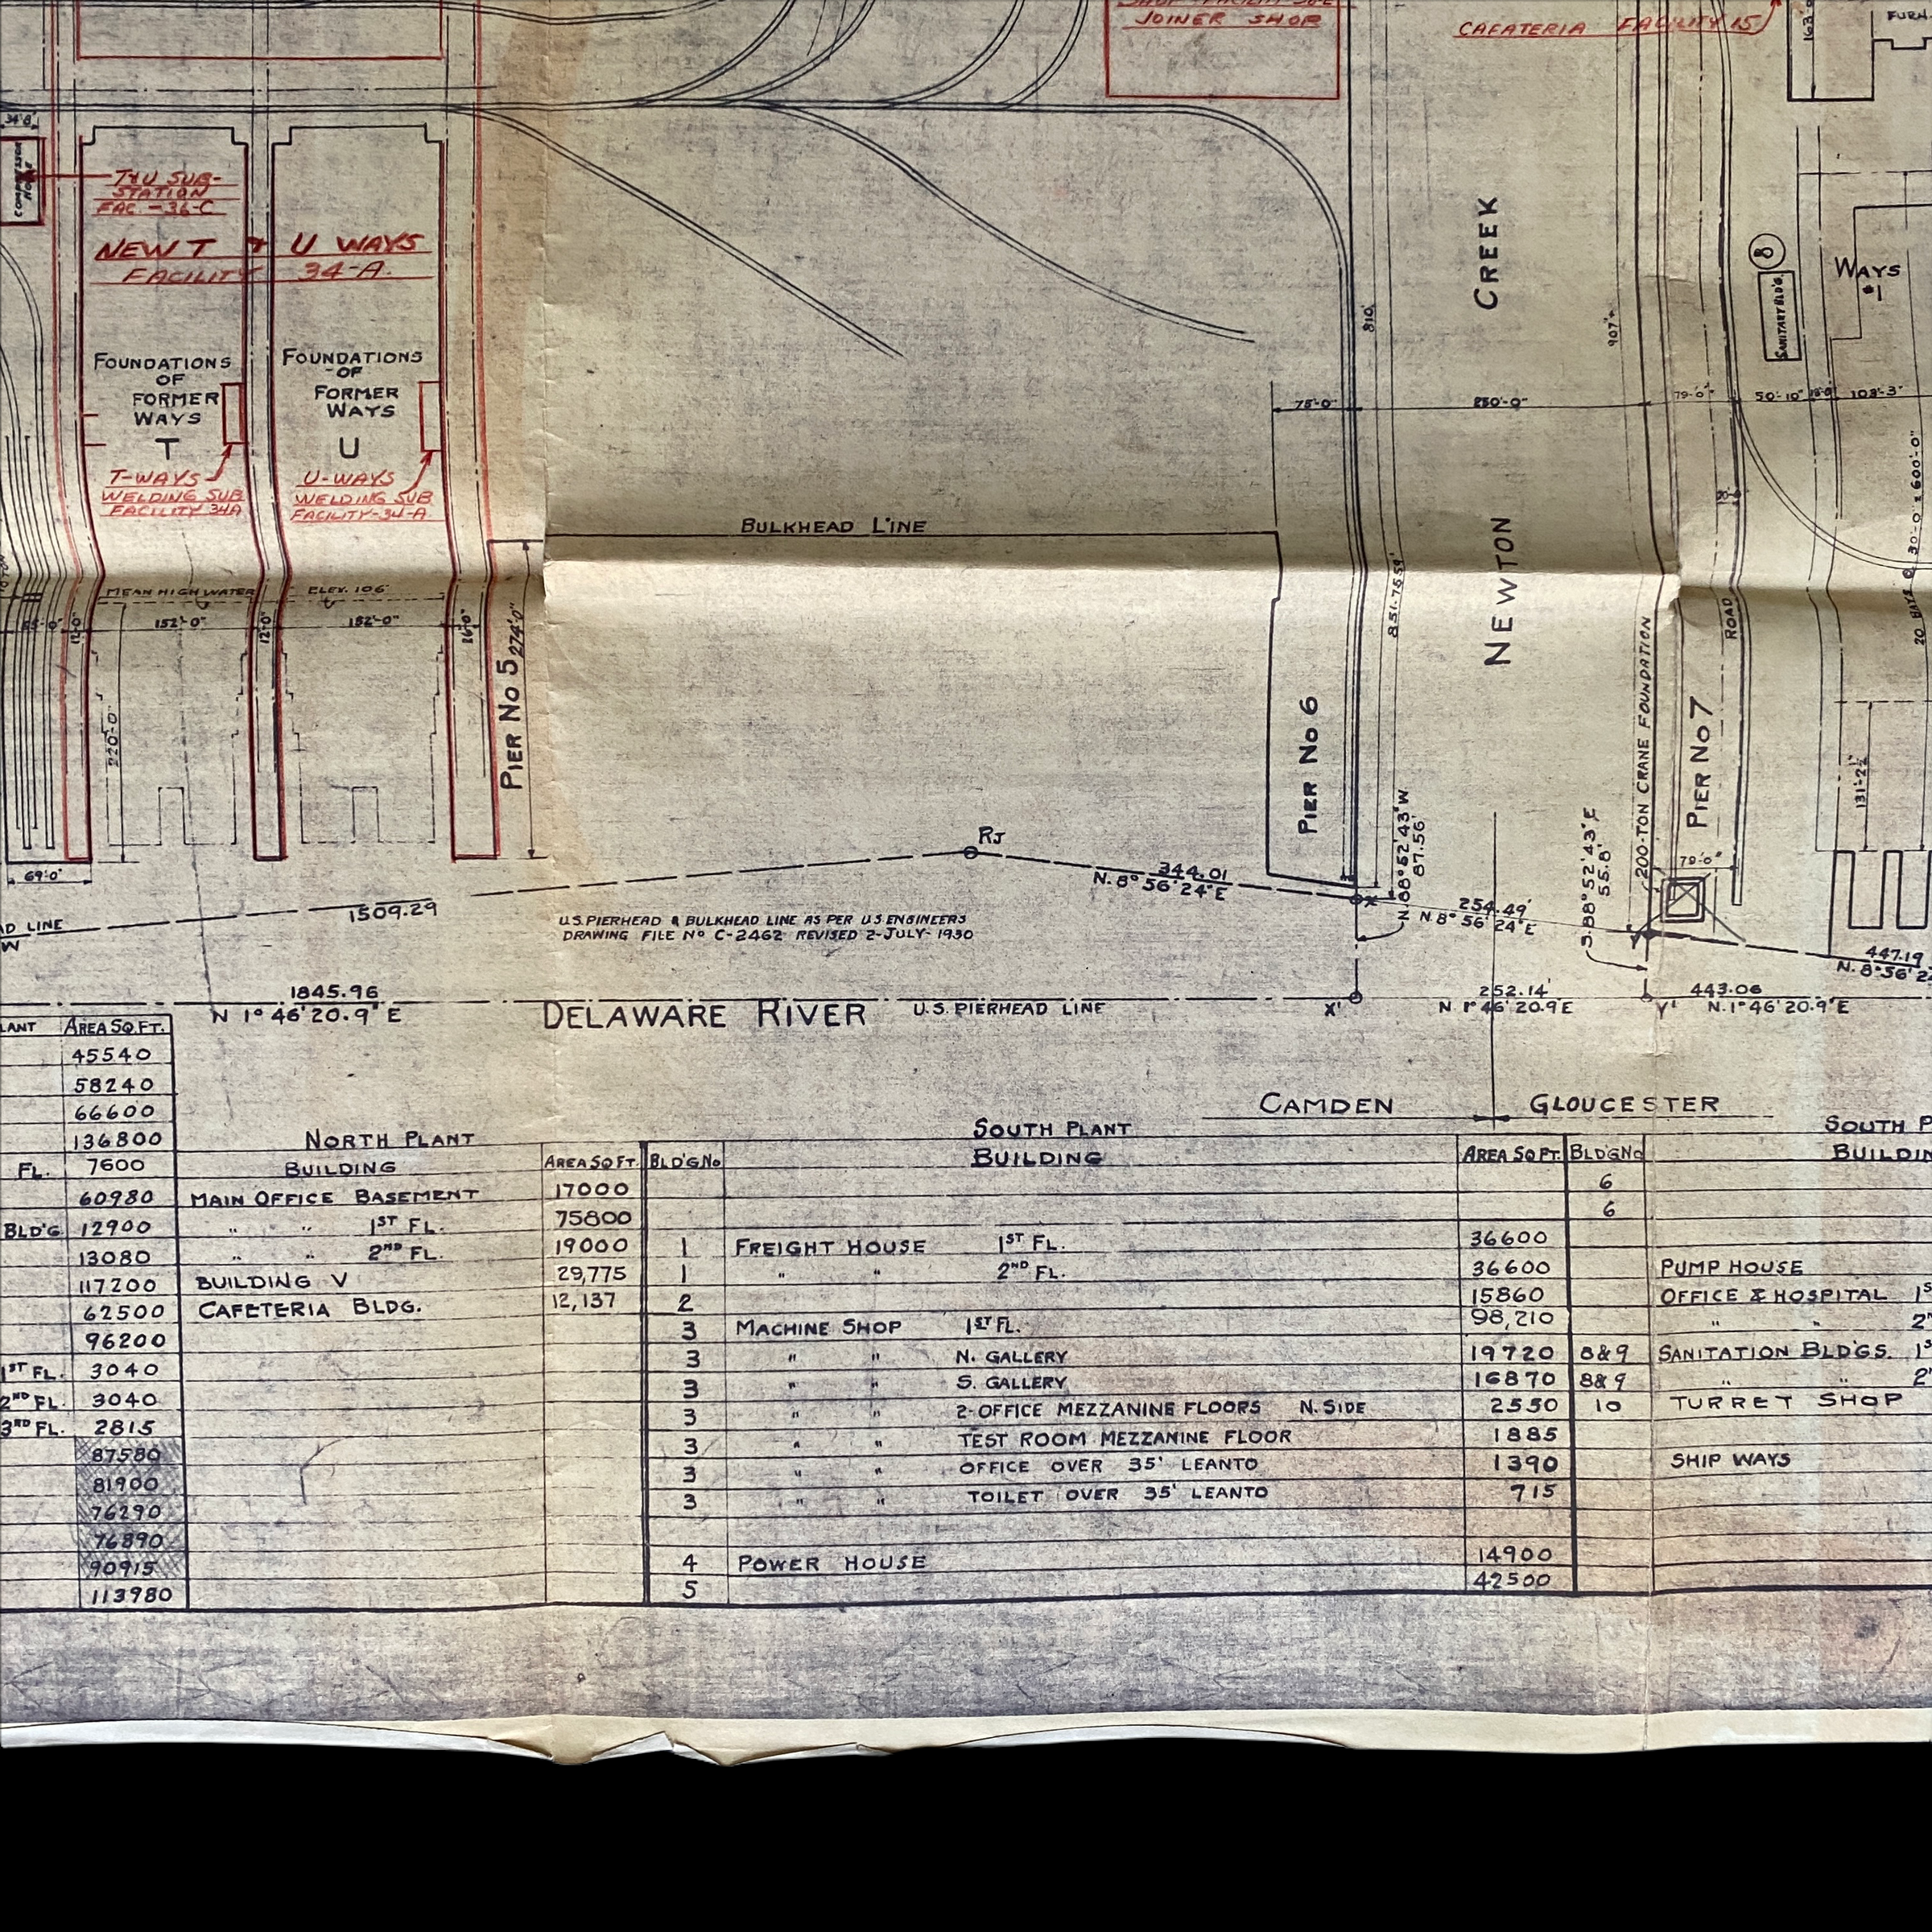 JOINER SHOP
CAFATERIA FACILITY 15
163'-0
FURN.
34'-8"
COMPRESSOR
HOUSE
T&U SUB-
STATION
FAC.-36-C
NEW T & U WAYS
FACILITY 34-A.
FOUNDATIONS
OF
FORMER
WAYS
T
FOUNDATIONS
OF
FORMER
WAYS
U
T-WAYS
WELDING SUB
FACILITY 34A
U-WAYS
WELDING SUB
FACILITY-34-A.
CREEK
NEWTON
810'
907'±
8
SANITARY BLD'G.
WAYS
#1
75'-0"
250'-0"
79'-0"
50'-10"
108'-3"
20 BAYS @ 30'-0"= 600'-0"
BULKHEAD LINE
MEAN HIGH WATER ELEV. 106'
12'-0"
152'-0"
12'-0"
152'-0"
16'-0"
PIER No 5
274'-0"
220'-0"
69'-0"
851.7659'
PIER No 6
200-TON CRANE FOUNDATION
PIER No 7
ROAD
79'-0"
131'-2½"
RJ
344.01
N. 8° 56' 24" E
N 88° 52' 43" W
87.56'
X
254.49'
N 8° 56' 24" E
S. 88° 52' 43" E
55.8'
Y
447.19
N. 8° 56' 2
AD LINE
W
1509.29
U.S. PIERHEAD & BULKHEAD LINE AS PER U.S ENGINEERS
DRAWING FILE No C-2462 REVISED 2-JULY-1930
1845.96
N 1° 46' 20.9" E
DELAWARE RIVER U.S. PIERHEAD LINE
X'
252.14'
N 1° 46' 20.9 E
Y'
443.06
N. 1° 46' 20.9" E
CAMDEN GLOUCESTER
LANT AREA SQ.FT.
45540
58240
66600
136800
FL. 7600
60980
BLD'G 12900
13080
117200
62500
96200
1ST FL. 3040
2ND FL. 3040
3RD FL. 2815
87580
81900
76290
76890
90915
113980
NORTH PLANT
BUILDING AREA SQ FT
MAIN OFFICE BASEMENT 17000
" " 1ST FL. 75800
" " 2ND FL. 19000
BUILDING V 29,775
CAFETERIA BLDG. 12,137
SOUTH PLANT
BLD'G No BUILDING AREA SQ.FT.
1 FREIGHT HOUSE 1ST FL. 36600
1 " " 2ND FL. 36600
2 15860
3 MACHINE SHOP 1ST FL. 98,210
3 " " N. GALLERY 19720
3 " " S. GALLERY 16870
3 " " 2-OFFICE MEZZANINE FLOORS N. SIDE 2550
3 " " TEST ROOM MEZZANINE FLOOR 1885
3 " " OFFICE OVER 35' LEANTO 1390
3 " " TOILET OVER 35' LEANTO 715
4 POWER HOUSE 14900
5 42500
SOUTH P
BLDG No BUILDIN
6
6
PUMP HOUSE
OFFICE & HOSPITAL 1S
" " 2N
8&9 SANITATION BLD'GS. 1S
8&9 " " 2"
10 TURRET SHOP
SHIP WAYS